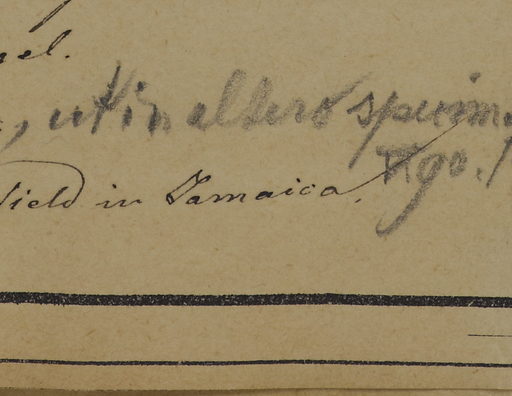 el.
, ut in altero specim.
Ego!
field in Jamaica.